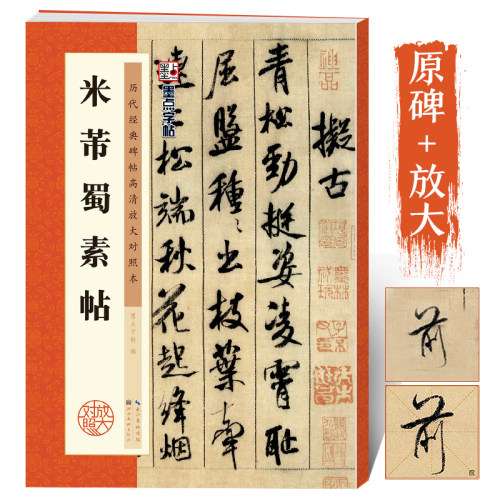 米芾蜀素帖
历代经典碑帖高清放大对照本
墨点字帖 编
放大对照
墨点字帖
擬古
青松勁挺姿凌霄恥
屈盤種〻出枝葉牽
連上松端秋花起絳烟
原碑+放大
前
前